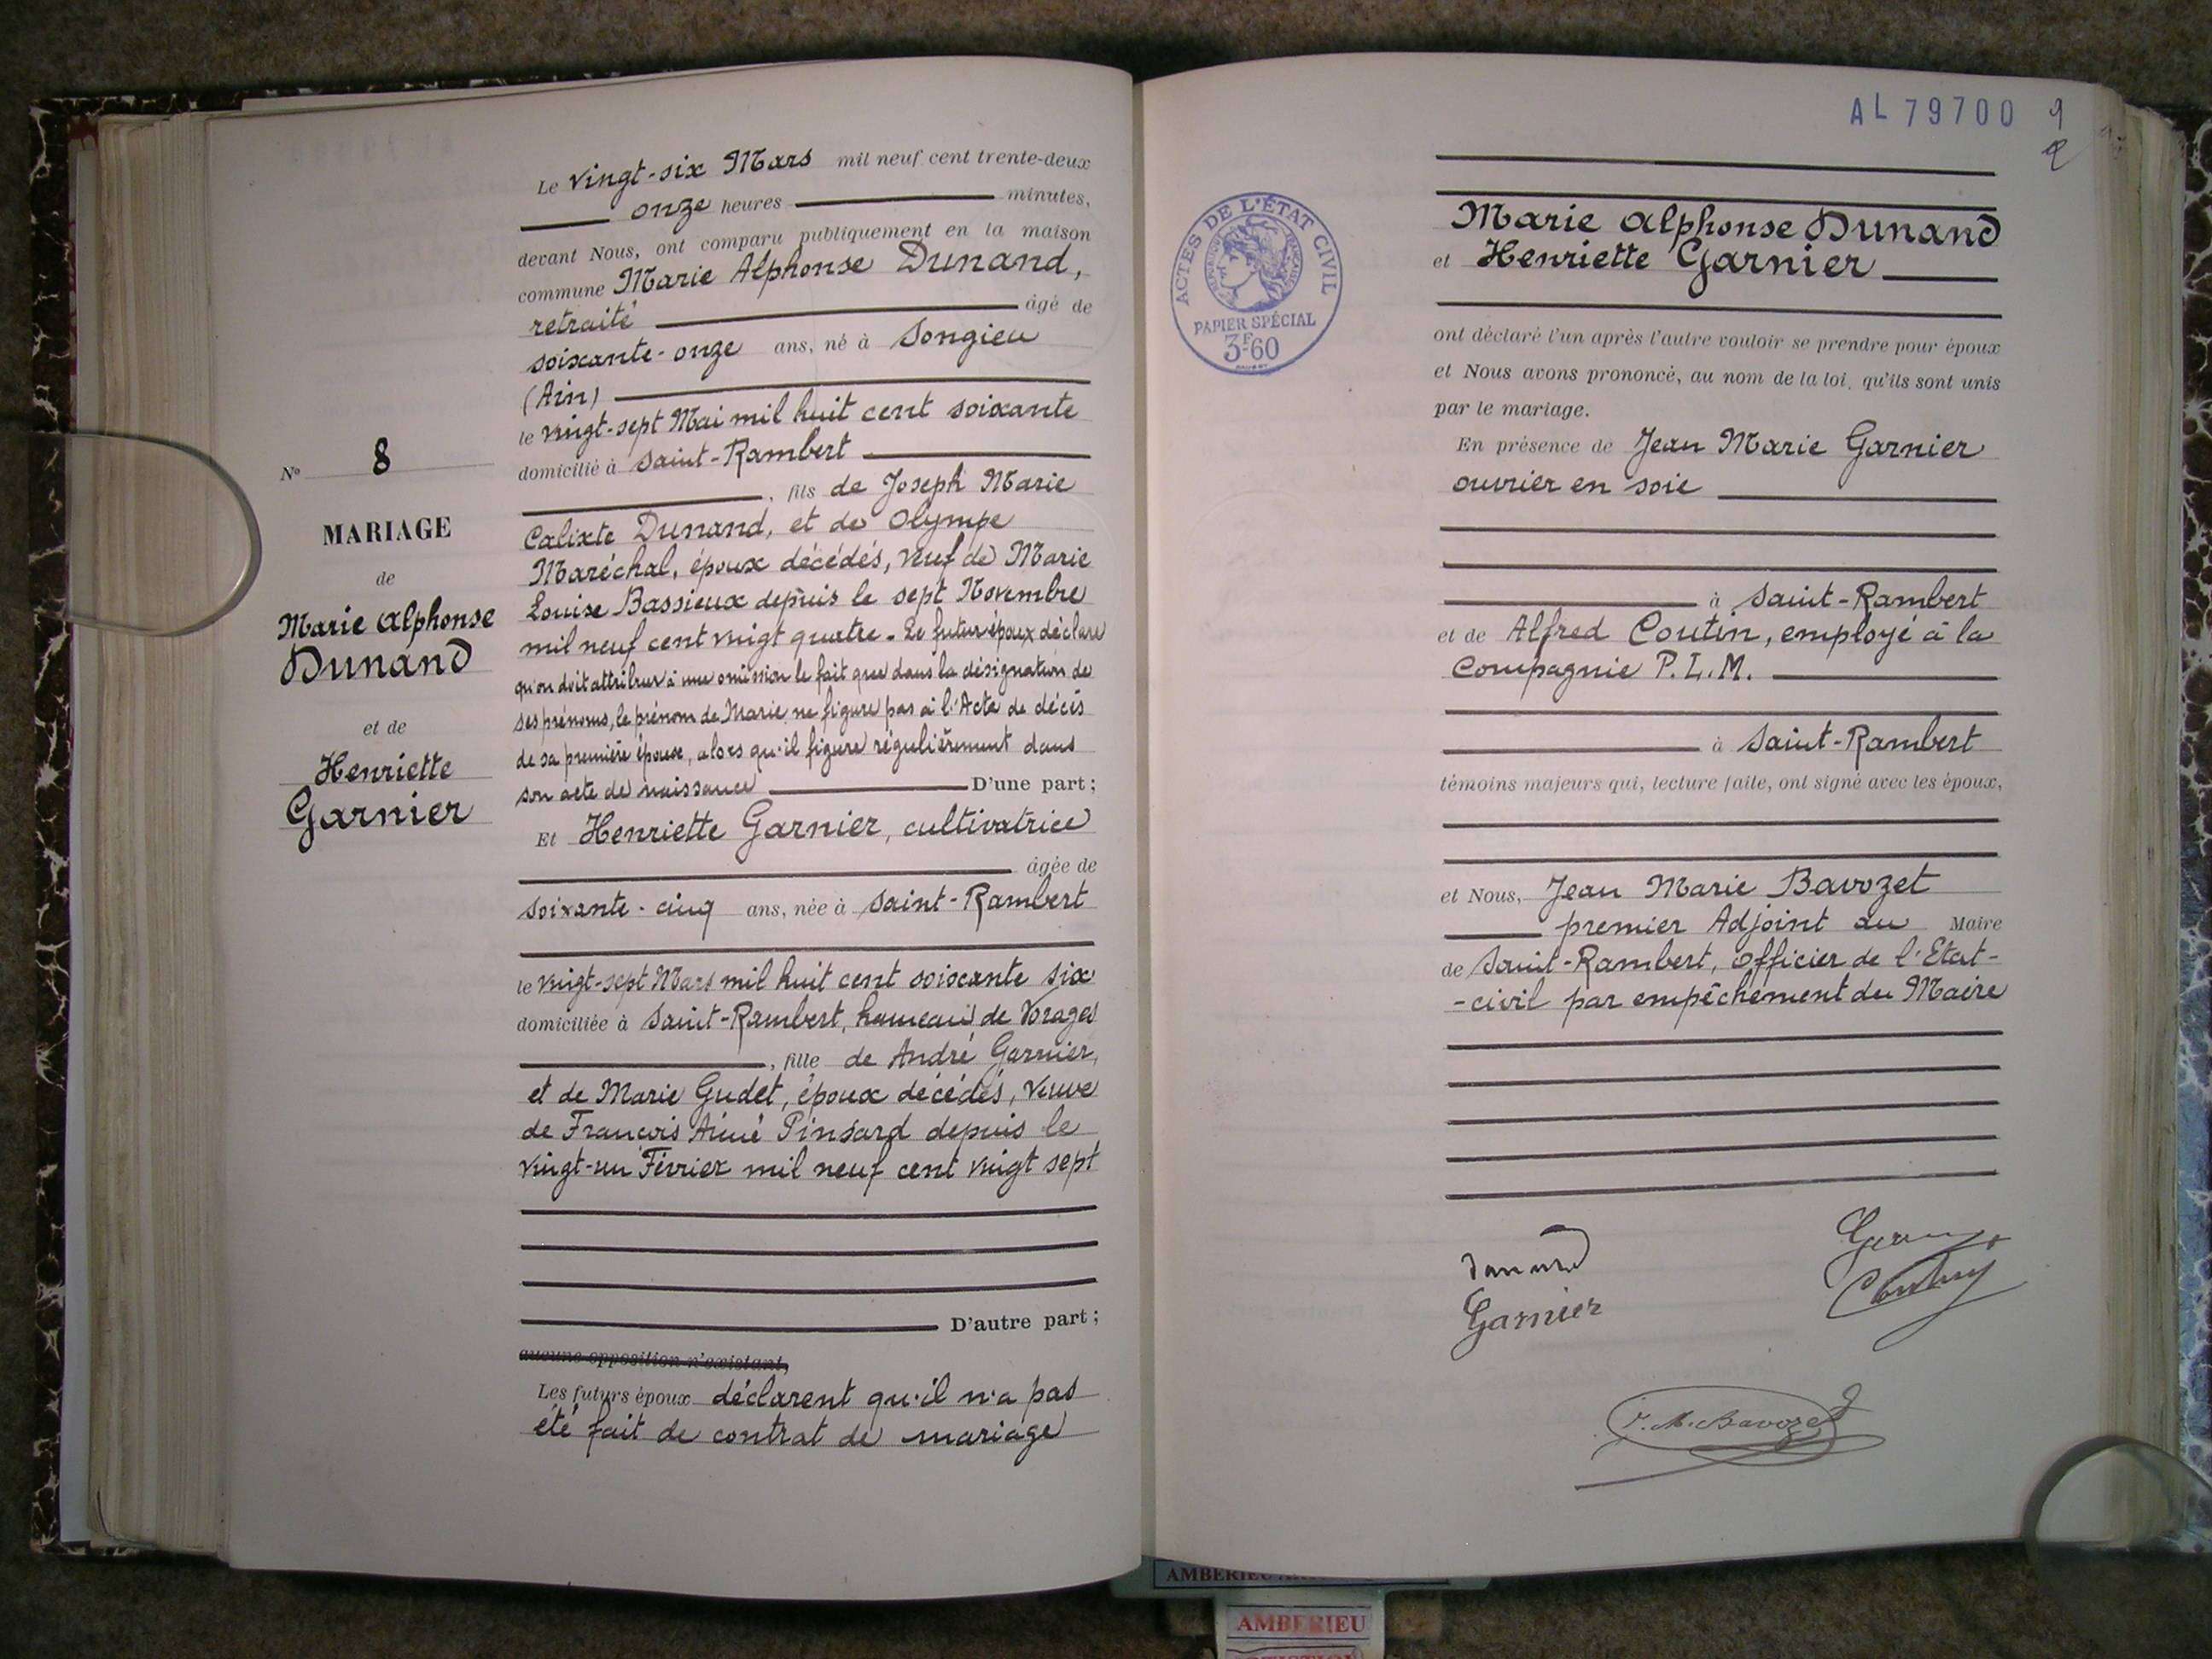 Le vingt-six Mars mil neuf cent trente-deux
onze heures minutes,
devant Nous, ont comparu publiquement en la maison
commune Marie Alphonse Dunand,
retraité âgé de
soixante-onze ans, né à Songieu
(Ain)
le vingt-sept Mai mil huit cent soixante
domicilié à Saint-Rambert
, fils de Joseph Marie
Calixte Dunand, et de Olympe
Maréchal, époux décédés, veuf de Marie
Louise Bassieux depuis le sept Novembre
mil neuf cent vingt quatre. Le futur époux déclare
qu'on doit attribuer à une omission le fait que dans la désignation de
ses prénoms, le prénom de Marie ne figure pas à l'Acte de décès
de sa première épouse, alors qu'il figure régulièrement dans
son acte de naissance D'une part ;
Et Henriette Garnier, cultivatrice
âgée de
soixante-cinq ans, née à Saint-Rambert
le vingt-sept Mars mil huit cent soixante six
domiciliée à Saint-Rambert, hameau de Vorages
, fille de André Garnier,
et de Marie Gudet, époux décédés, veuve
de François Aimé Pinsard depuis le
vingt-un Février mil neuf cent vingt sept
D'autre part ;
aucune opposition n'existant,
Les futurs époux déclarent qu'il n'a pas
été fait de contrat de mariage
N° 8
MARIAGE
de
Marie Alphonse
Dunand
et de
Henriette
Garnier
AL 79700 9
2
ACTES DE L'ÉTAT CIVIL
PAPIER SPÉCIAL
3F60
Marie Alphonse Dunand
et Henriette Garnier
ont déclaré l'un après l'autre vouloir se prendre pour époux
et Nous avons prononcé, au nom de la loi, qu'ils sont unis
par le mariage.
En présence de Jean Marie Garnier
ouvrier en soie
à Saint-Rambert
et de Alfred Coutin, employé à la
Compagnie P.L.M.
à Saint-Rambert
témoins majeurs qui, lecture faite, ont signé avec les époux,
et Nous, Jean Marie Bavozet
premier Adjoint au Maire
de Saint-Rambert, Officier de l'Etat-
-civil par empêchement du Maire
Dunand
Garnier
J. M. Bavozet
AMBERIEU
AMBERIEU